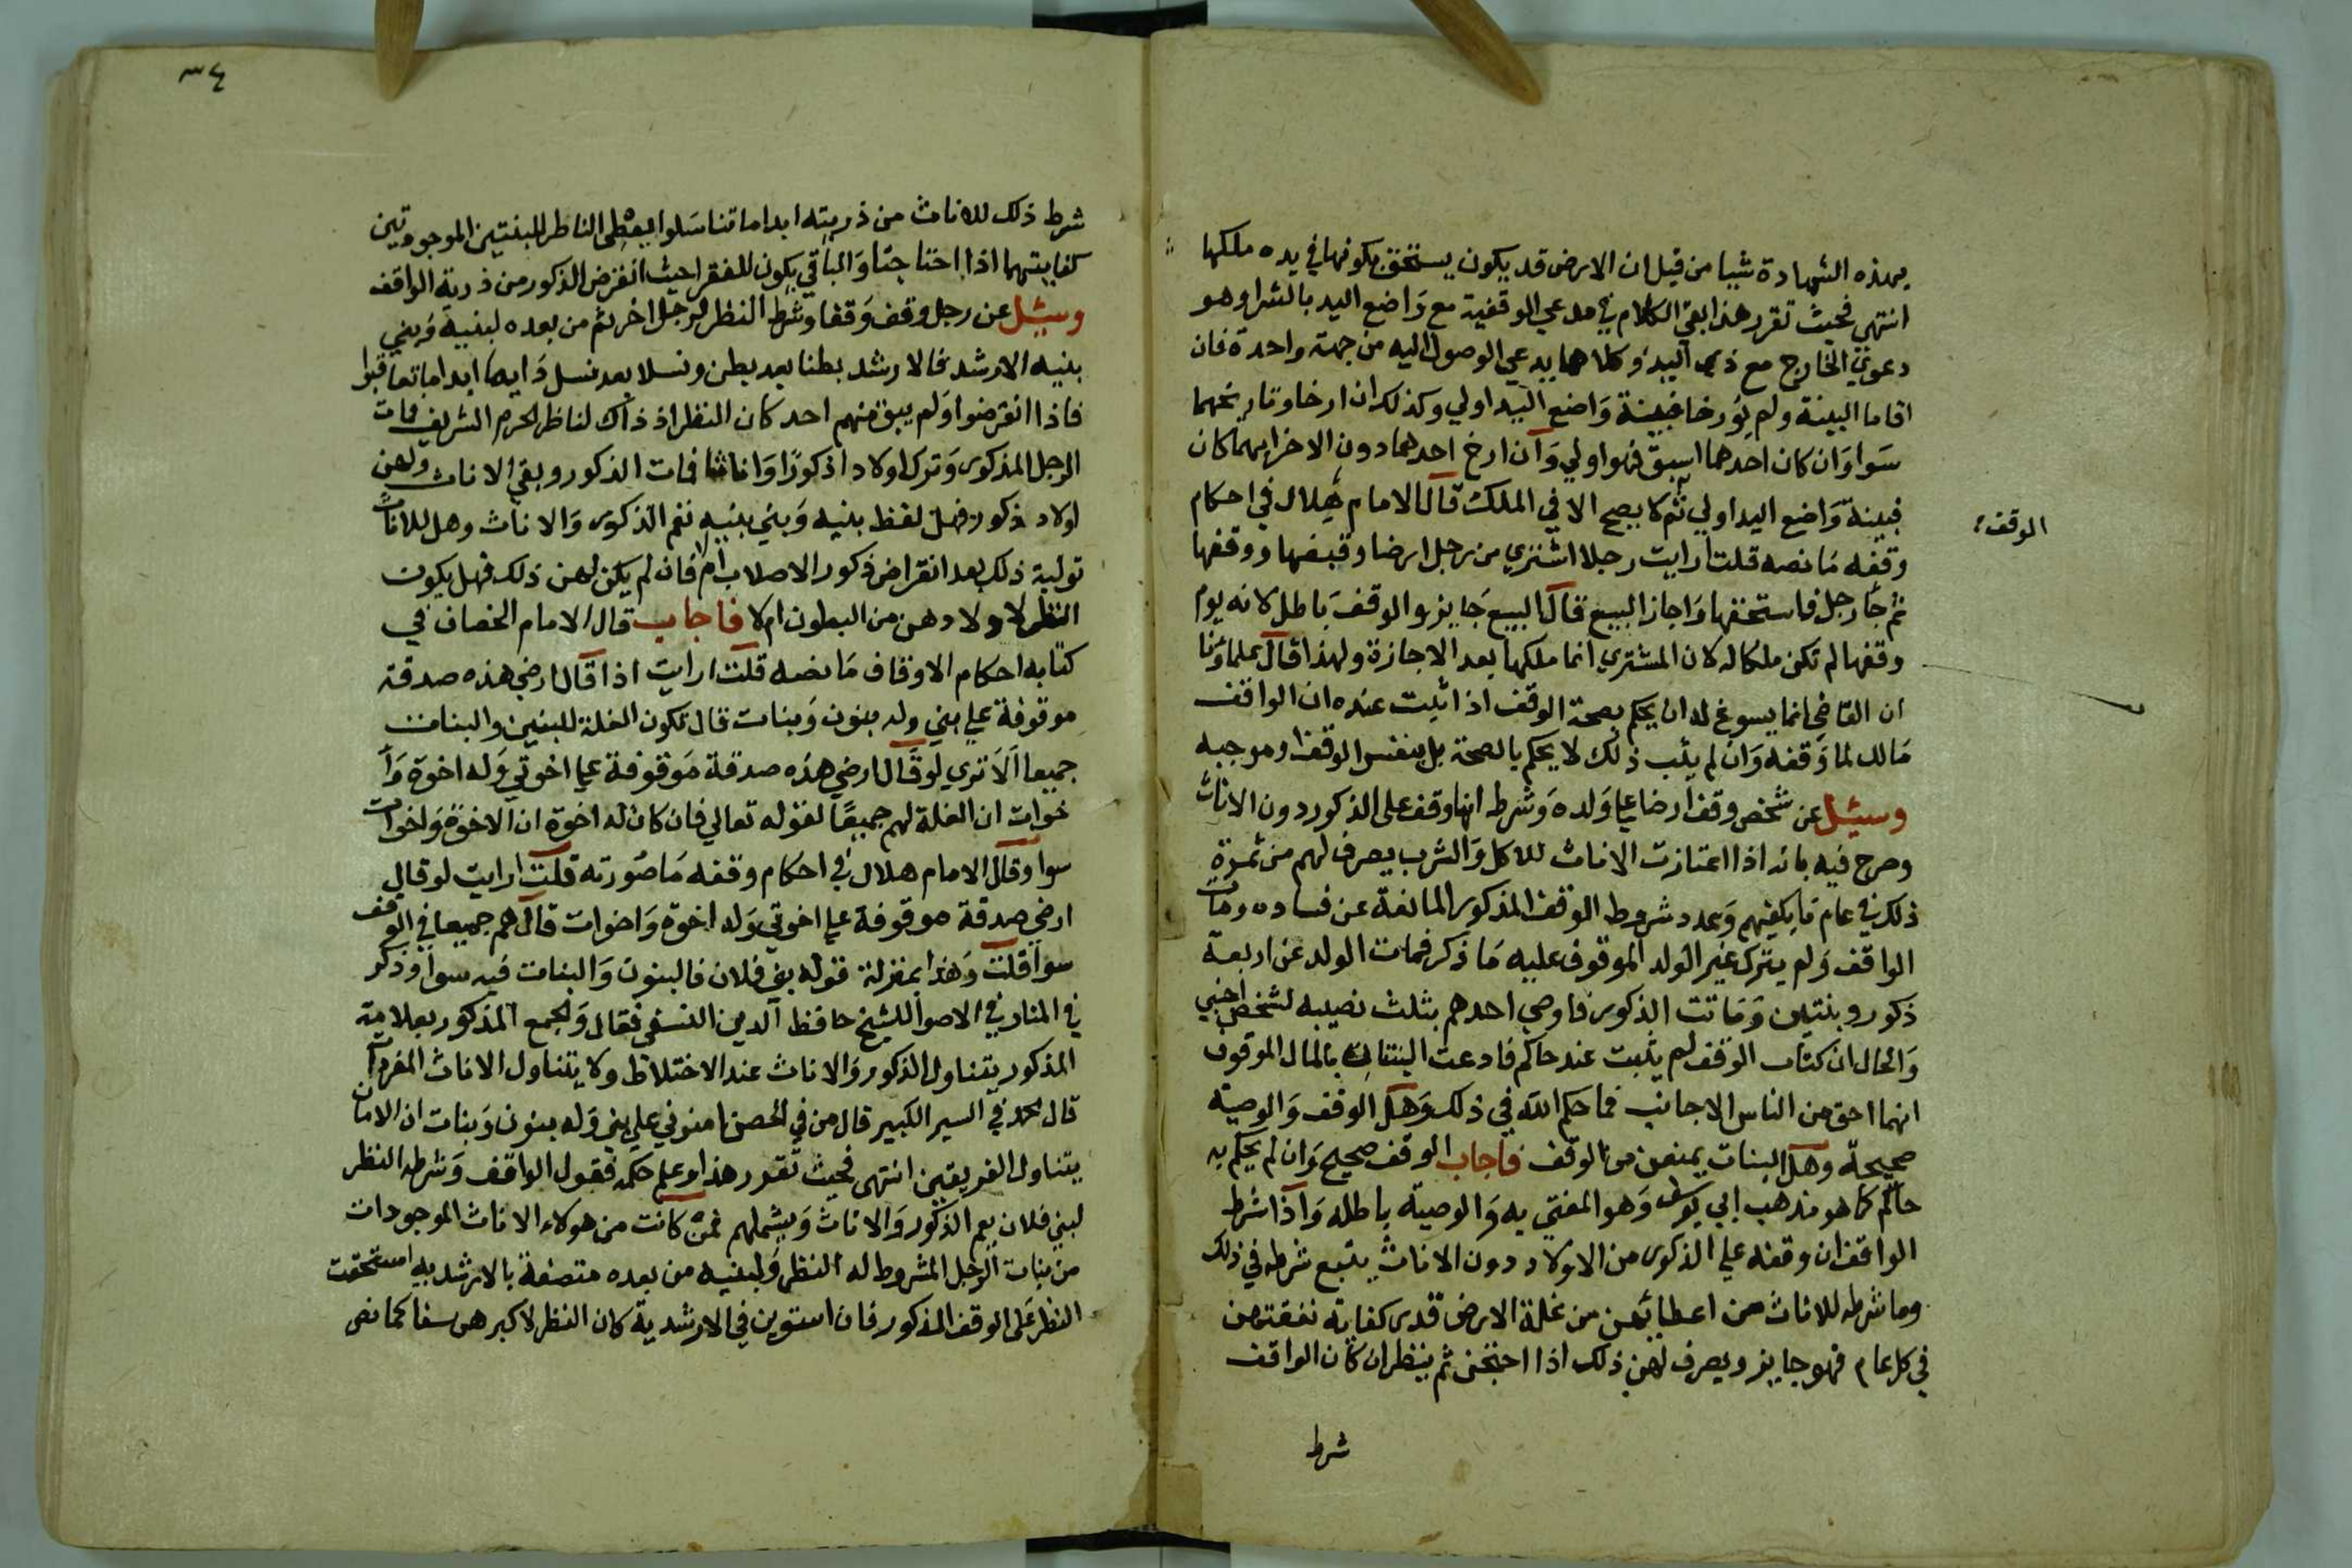 بهذه الشهادة شيا من قبل ان الارض قد يكون يستحق بكونها في يده ملكها
انتهي فحيث تقرر هذا بقي الكلام في مدعي الوقفية مع واضع اليد بالشرا وهو
دعوي الخارج مع ذي اليد وكلاهما يدعي الوصول اليه من جهة واحدة فان
اقاما البينة ولم يورخا فبينة واضع اليد اولي وكذلك ان ارخا وتاريخهما
سوا وان كان احدهما اسبق فهو اولي وان ارخ احدهما دون الاخر ايهما كان
فبينة واضع اليد اولي ثم لا يصح الا في الملك قال الامام هلال في احكام
الوقف
وقفه ما نصه قلت ارايت رجلا اشتري من رجل ارضا وقبضها ووقفها
ثم جا رجل فاستحقها واجاز البيع قال البيع جايز والوقف باطل لانه يوم
وقفها لم تكن ملكا له لان المشتري انما ملكها بعد الاجازة ولهذا قال علماونا
ان القاضي انما يسوغ له ان يحكم بصحة الوقف اذا ثبت عنده ان الواقف
مالك لما وقفه وان لم يثبت ذلك لا يحكم بالصحة بل بنفس الوقف وموجبه
وسيل عن شخص وقف ارضا علي ولده وشرط انها وقف على الذكور دون الاناث
وصرح فيه بانه اذا اعتازت الاناث للاكل والشرب يصرف لهم من ثمرة
ذلك في عام ما يكفيهم وعدد شروط الوقف المذكور المانعة عن فساده ومات
الواقف ولم يترك غير الولد الموقوف عليه ما ذكر فمات الولد عن اربعة
ذكور وبنتين وماتت الذكور فاوصي احدهم بثلث نصيبه لشخص اجنبي
والحال ان كتاب الوقف لم يثبت عند حاكم فادعت البنتان بالمال الموقوف
انهما احق من الناس الاجانب فما حكم الله في ذلك وهل الوقف والوصية
صحيحة وهل البنات يمنعن من الوقف فاجاب الوقف صحيح وان لم يحكم به
حاكم كما هو مذهب ابي يوسف وهو المفتي به والوصية باطله واذا شرط
الواقف ان وقفه علي الذكور من الاولاد دون الاناث يتبع شرطه في ذلك
وما شرطه للاناث من اعطائهن من غلة الارض قدر كفاية نفقتهن
في كل عام فهو جايز ويصرف لهن ذلك اذا احتجن ثم ينظر ان كان الواقف
شرط
٣٤
شرط ذلك للاناث من ذريته ابدا ما تناسلوا يعطي الناظر للبنتين الموجودتين
كفايتهما اذا احتاجتا والباقي يكون للفقرا حيث انقرض الذكور من ذرية الواقف
وسيل عن رجل وقف وقفا وشرط النظر لرجل اخر ثم من بعده لبنيه وبني
بنيه الارشد فالارشد بطنا بعد بطن ونسلا بعد نسل دايما ابدا ما تعاقبوا
فاذا انقرضوا ولم يبق منهم احد كان النظر اذ ذاك لناظر الحرم الشريف فمات
الرجل المذكور وترك اولادا ذكورا واناثا فمات الذكور وبقي الاناث ولهن
اولاد ذكور فهل لفظ بنيه وبني بنيه تعم الذكور والاناث وهل للاناث
تولية ذلك بعد انقراض ذكور الاصلاب ام لا فان لم يكن لهن ذلك فهل يكون
النظر لاولادهن من البطون ام لا فاجاب قال الامام الخصاف في
كتابه احكام الاوقاف ما نصه قلت ارايت اذا قال ارضي هذه صدقة
موقوفة علي بني وله بنون وبنات قال تكون الغلة للبنين والبنات
جميعا الا تري لو قال ارضي هذه صدقة موقوفة علي اخوتي وله اخوة وا
خوات ان الغلة لهم جميعا لقوله تعالي فان كان له اخوة ان الاخوة واخوات
سوا وقال الامام هلال في احكام وقفه ما صورته قلت ارايت لو قال
ارضي صدقة موقوفة علي اخوتي وله اخوة واخوات قال هم جميعا في الوقف
سوا قلت وهذا بمنزلة قوله بني فلان فالبنون والبنات فيه سوا وذكر
في المنار في الاصول للشيخ حافظ الدين النسفي فقال والجمع المذكور بعلامة
المذكور يتناول الذكور والاناث عند الاختلاط ولا يتناول الاناث المفردات
قال محمد في السير الكبير قال من في الحصن امنوني علي بني وله بنون وبنات ان الامان
يتناول الفريقين انتهى فحيث تقرر هذا وعلم حكمه فقول الواقف وشرطه النظر
لبني فلان يعم الذكور والاناث ويشملهم فمن كانت من هولاء الاناث الموجودات
من بنات الرجل المشروط له النظر ولبنيه من بعده متصفة بالارشدية استحقت
النظر على الوقف المذكور فان استوين في الارشدية كان النظر لاكبرهن سنا كما نص